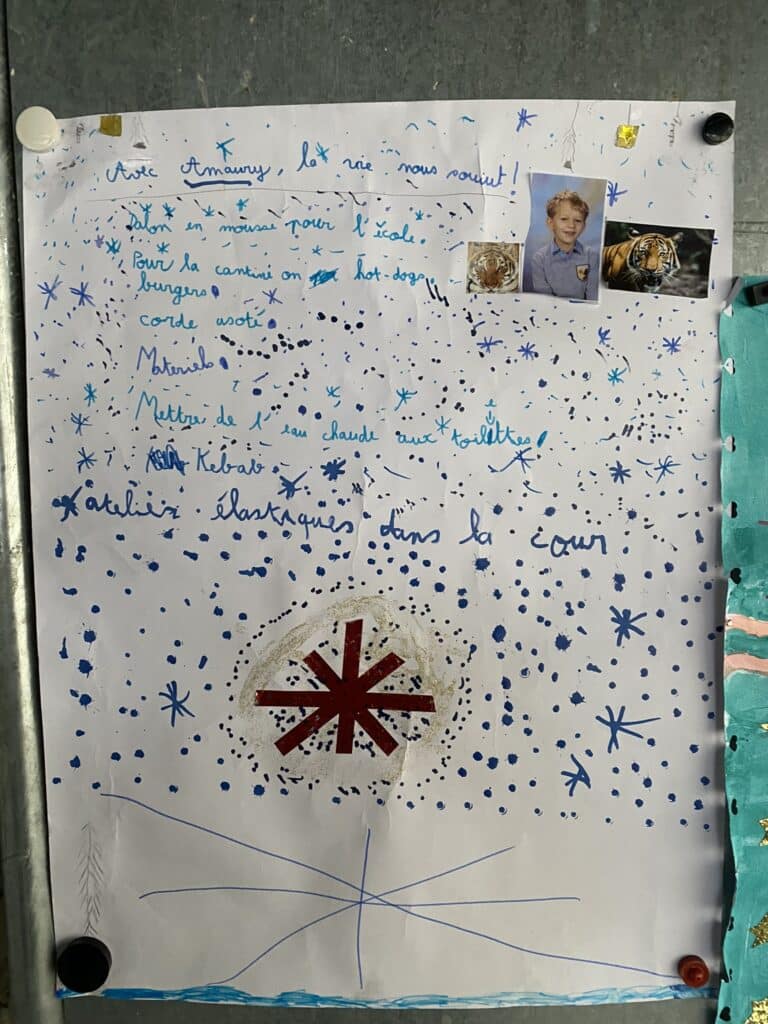 Avec Amaury, la vie nous sourit !
Balon en mousse pour l'école.
Pour la cantine on hot-dogs,
burgers.
corde asoté.
Materiels.
Mettre de l'eau chaude aux toilettes.
Kebab.
atelier élastiques dans la cour.